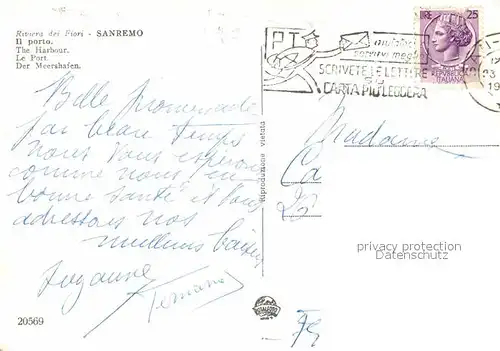 Riviera dei Fiori - SANREMO
Il porto.
The Harbour.
Le Port.
Der Meershafen.
Belle promenade
par beau temps
nous vous espérons
comme nous en
bonne santé et vous
adressons nos
meilleurs baisers
Suzanne
Fernand
20569
Riproduzione vietata
PT
SCRIVETE LE LETTERE
SU
CARTA PIÙ LEGGERA
LIRE 25
REPVBBLICA
ITALIANA
23
19
Madame
Ca
privacy protection
Datenschutz